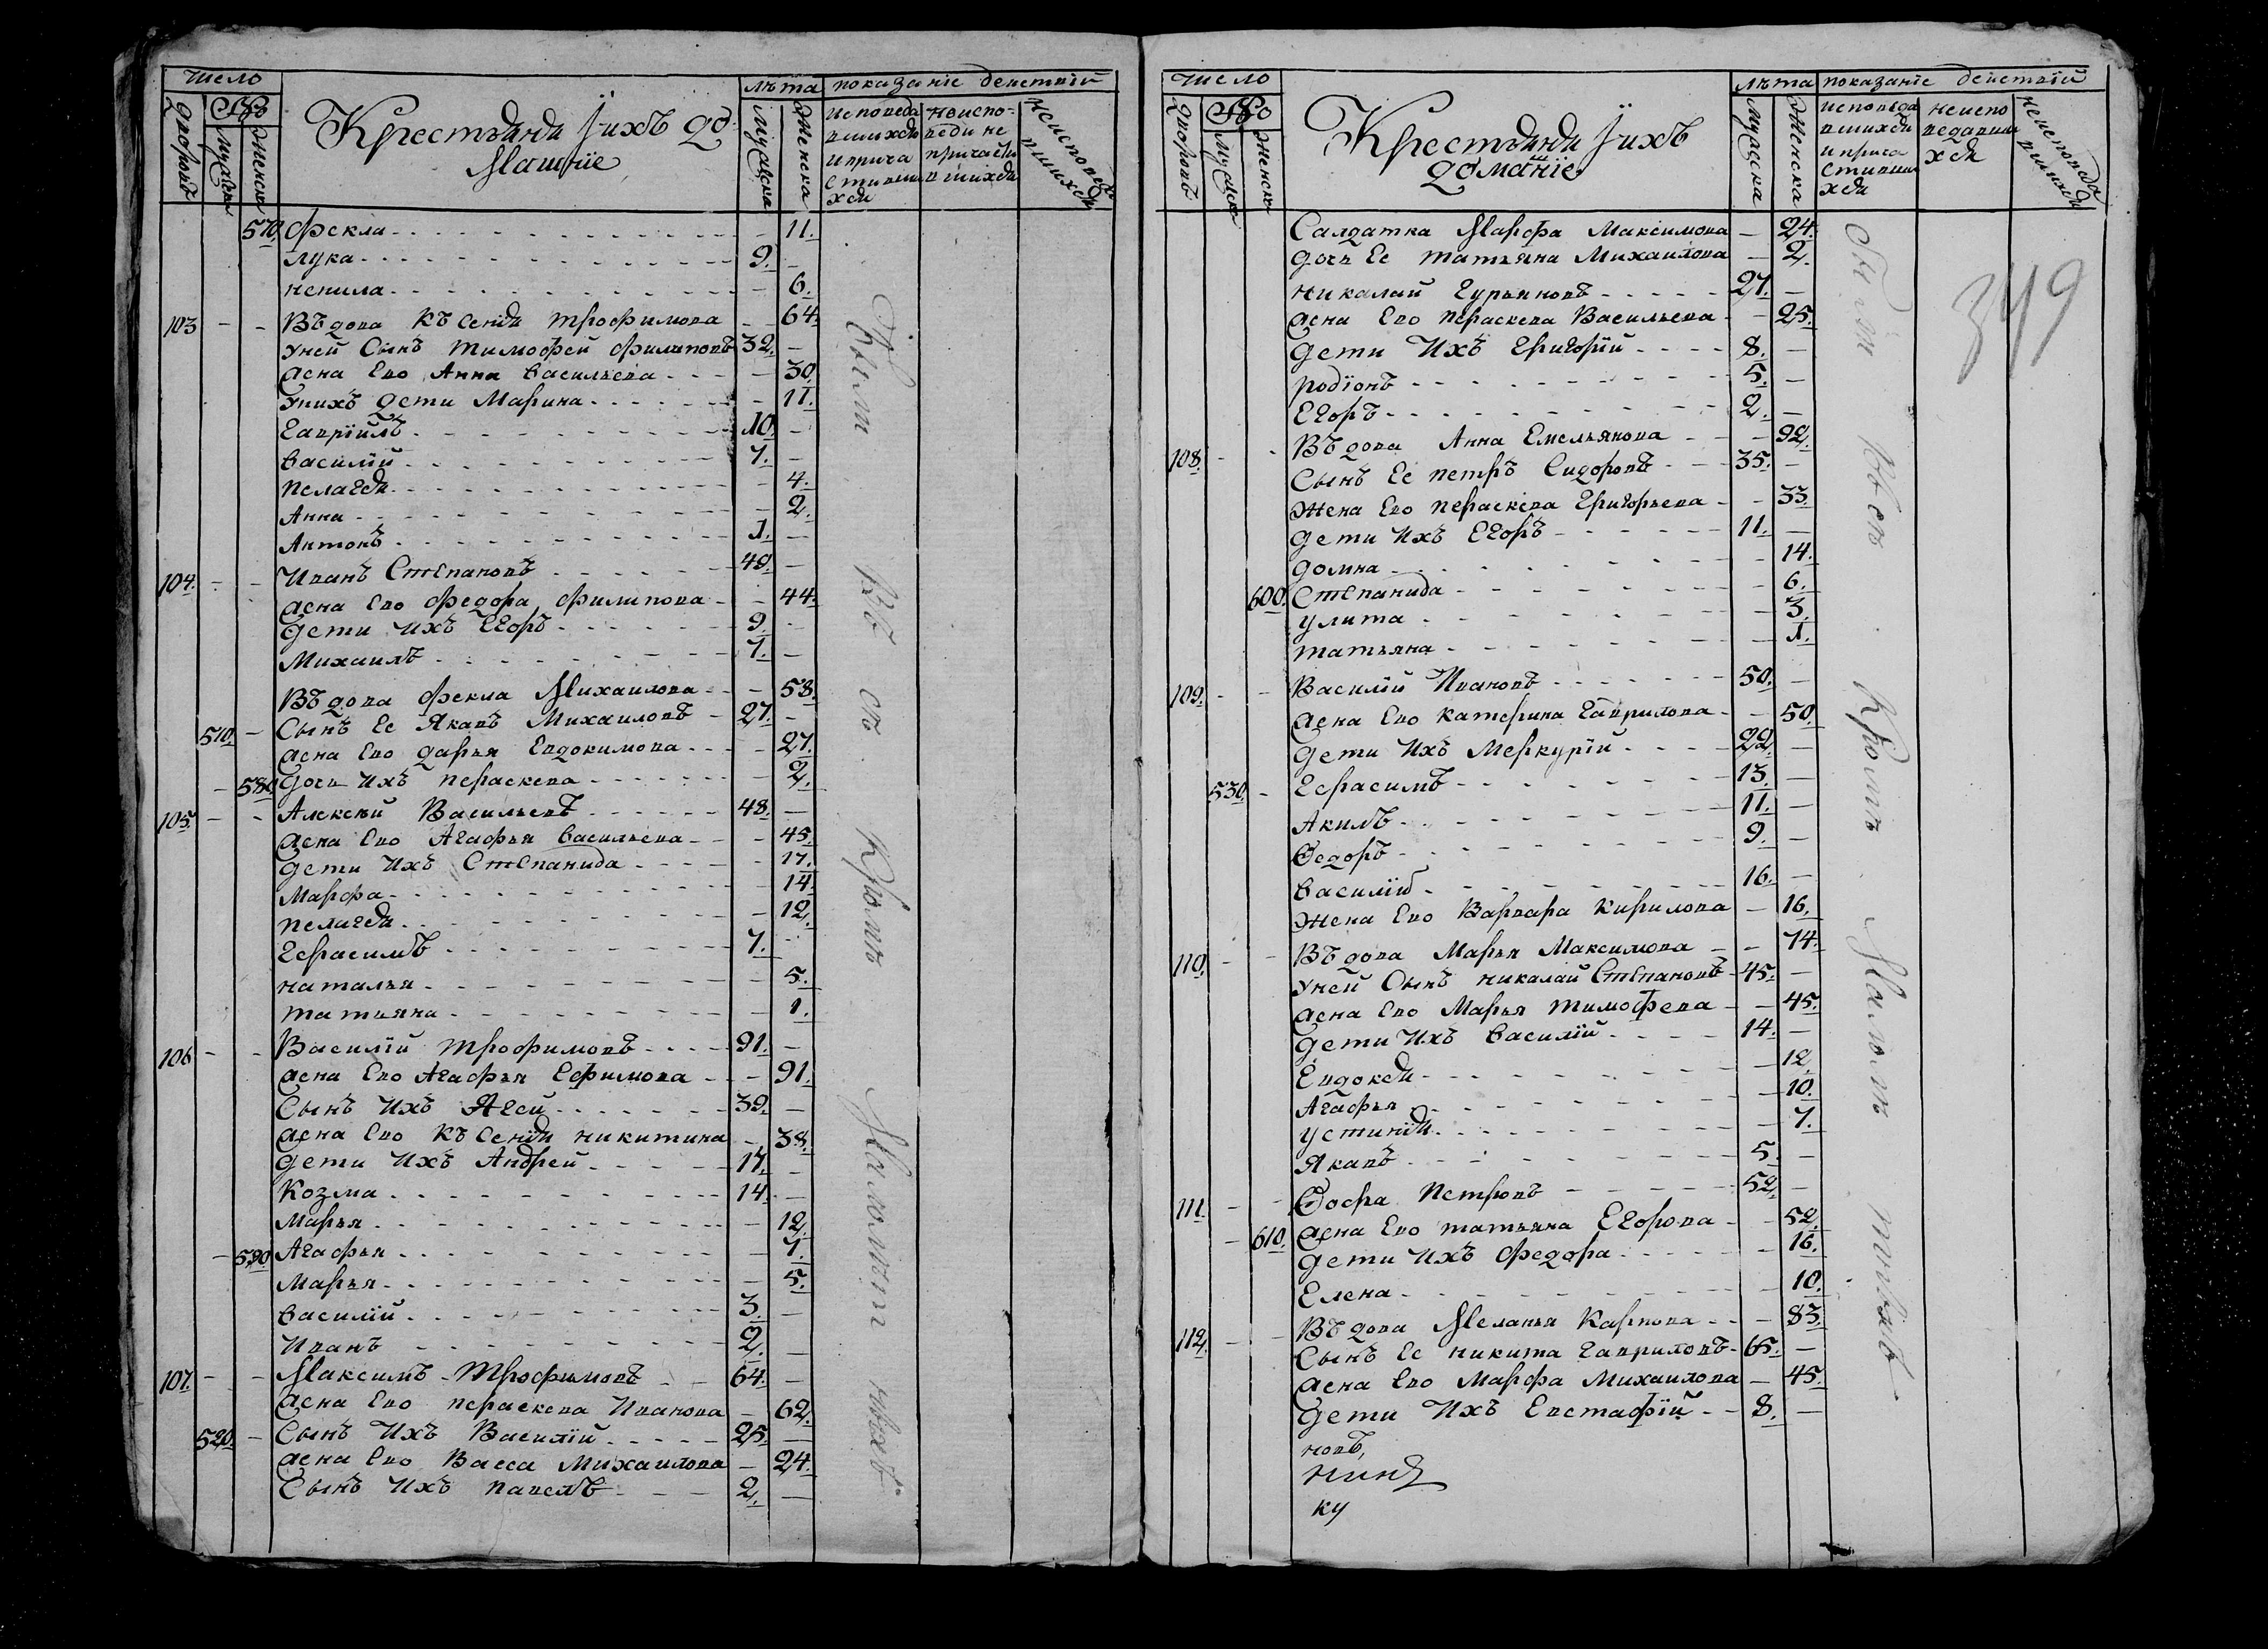 число
лѣта показанïе деиствïй
дворовъ
мужеска
женска
Крестьяня Їихъ до
Машнïе
мужеска
женска
исповеда
вшихся
и прича
стивши
хся
неиспо=
веди не
причасти
вшихся
неисповеда
вшихся
570. фекла 11.
лука 9. —
ненила — 6.
103 Въдова Къ сенїя трофимова — 64.
Уней Сынъ тимофей филиповъ 32. —
жена Ево Анна васильева — 30.
Унихъ дети Марина — 11.
Гаврїилъ 10. —
василїй 7. —
пелагея — 4.
Анна — 2.
Антонъ 1. —
104. Иванъ Степановъ 49. —
жена Ево федора филипова — 44.
дети Ихъ Егоръ 9. —
Михаилъ 7. —
Въдова фекла Михаилова — 58.
510. Сынъ Ее Якавъ Михаиловъ 27. —
жена Ево дарья Евдокимова — 27.
580. дочь Ихъ пераскева — 2.
105. Алексѣй Васильевъ 48. —
жена Ево Агафья васильева — 45.
дети Ихъ Степанида — 17.
Марфа — 14.
пелагея — 12.
Герасимъ 7. —
наталья — 5.
татьяна — 1.
106 Василїй трофимовъ 91. —
жена Ево Агафья Ефимова — 91.
Сынъ Ихъ Агей 39. —
жена Ево Къ Сенїя никитина — 38.
дети Ихъ Андрей 17. —
Козма 14. —
Марья — 12.
590 Агафья — 7.
Марья — 5.
василїй 3. —
Иванъ 2. —
107. Максимъ Трофимовъ 64. —
жена Ево пераскева Иванова — 62.
520. Сынъ Ихъ Василїй 25. —
жена Ево Васса Михаилова — 24.
Сынъ Ихъ павелъ 2. —
число
лѣта показанïе деиствïй
дворовъ
женска
Крестьяня Їихъ
домашнïе
мужеска
женска
исповеда
вшихся
и прича
стивши
хся
неиспо
ведавши
хся
неисповеда
вшихся
349
Салдатка Марфа Максимова — 24.
дочь Ее татьяна Михаилова — 2.
николай Гурьяновъ 27. —
жена Ево пераскева Васильева — 25.
дети Ихъ Григорїй 8. —
родїонъ 5. —
Егоръ 2. —
108. Въдова Анна Емельянова — 92.
Сынъ Ее петръ Сидоровъ 35. —
жена Ево пераскева Григорьева — 33.
дети Ихъ Егоръ 11. —
домна — 14.
600. Степанида — 6.
улита — 3.
татьяна — 1.
109. Василїй Ивановъ 50. —
жена Ево катерина Гаврилова — 50.
дети Ихъ Меркурїй 22. —
530. Герасимъ 13. —
Акимъ 11. —
Ѳедоръ 9. —
василїй 16. —
жена Ево Варвара Кирилова — 16.
110. Въдова Марья Максимова — 74.
Уней Сынъ николай Степановъ 45. —
жена Ево Марья тимофева — 45.
дети Ихъ василїй 14. —
Евдокея — 12.
Агафья — 10.
устинїя — 7.
Якавъ 5. —
111. Ѳофа Петровъ 52. —
610. жена Ево татьяна Егорова — 52.
дети Ихъ федора — 16.
Елена — 10.
112. Въдова Меланья Карпова — 83.
Сынъ Ее никита Гавриловъ 65. —
жена Ево Марфа Михаилова — 45.
дети Ихъ Евстафїй 8. —
новъ,
ку